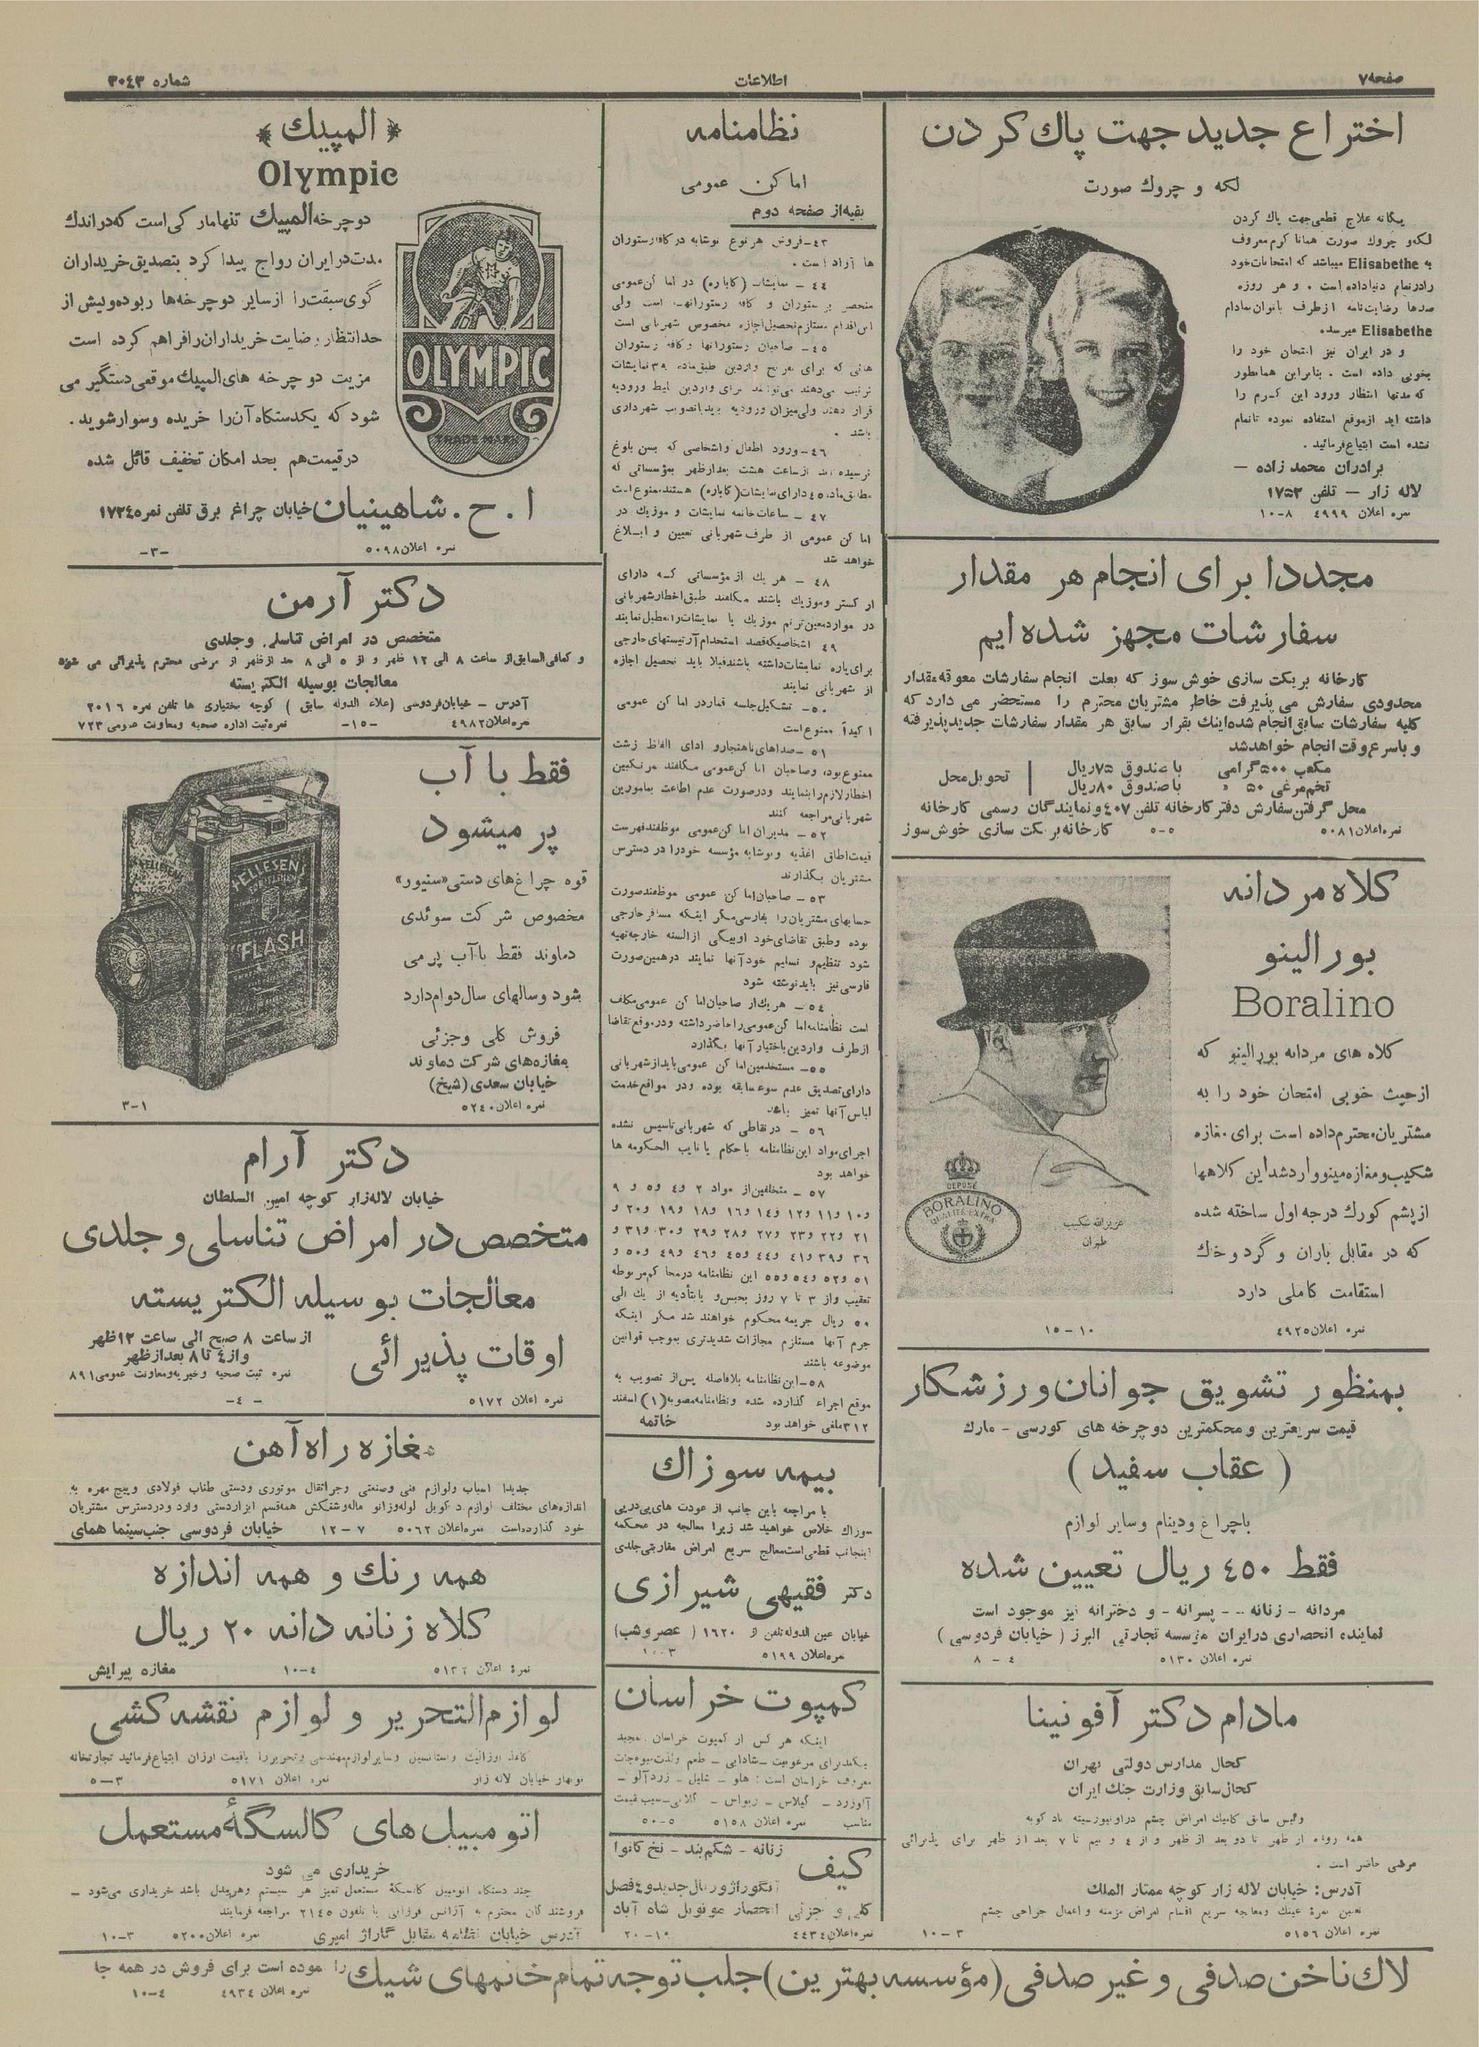 صفحه ۷
اطلاعات
شماره ۳۰۴۳
اختراع جدید جهت پاك کردن
لکه و چروك صورت
یگانه علاج قطعی جهت پاك کردن
لکه و چروك صورت همانا کرم معروف
به Elisabethe میباشد که امتحانات خود
را در تمام دنیا داده است . و هر روزه
صدها رضایت نامه از طرف بانوان بمادام
Elisabethe میرسد.
و در ایران نیز امتحان خود را
بخوبی داده است . بنابراین همانطور
که مدتها انتظار ورود این کرم را
داشته اید از موقع استفاده نموده تا تمام
نشده است ابتیاع فرمائید .
برادران محمد زاده —
لاله زار — تلفن ۱۷۵۳
نمره اعلان ۴۹۹۹ ۸-۱۰
مجددا برای انجام هر مقدار
سفارشات مجهز شده ایم
کارخانه بریکت سازی خوش سوز که بعلت انجام سفارشات معوقه مقدار
محدودی سفارش می پذیرفت خاطر مشتریان محترم را مستحضر می دارد که
کلیه سفارشات سابق انجام شده اینك بقرار سابق هر مقدار سفارشات جدید پذیرفته
و باسرع وقت انجام خواهد شد
مکعب ۵۰۰ گرامی با صندوق ۷۵ ریال
تخم مرغی ۵۰ » با صندوق ۸۰ ریال
تحویل محل
محل گرفتن سفارش دفتر کارخانه تلفن ۴۰۷ و نمایندگان رسمی کارخانه
نمره اعلان ۵۰۸۱ ۵-۵ کارخانه بریکت سازی خوش سوز
کلاه مردانه
بورالینو
Boralino
کلاه های مردانه بورالینو که
از حیث خوبی امتحان خود را به
مشتریان محترم داده است برای مغازه
شکیب و مغازه مینو وارد شد این کلاهها
از پشم کورك درجه اول ساخته شده
که در مقابل باران و گرد و خاك
استقامت کاملی دارد
DEPOSÉ
BORALINO
QUALITÉ EXTRA
عزیزالله شکیب
طهران
نمره اعلان ۴۹۲۵ ۱۰-۱۵
بمنظور تشویق جوانان ورزشکار
قیمت سریعترین و محکمترین دوچرخه های کورسی - مارك
( عقاب سفید )
با چراغ و دینام و سایر لوازم
فقط ۴۵۰ ریال تعیین شده
مردانه - زنانه - پسرانه - و دخترانه نیز موجود است
نماینده انحصاری در ایران مؤسسه تجارتی البرز ( خیابان فردوسی )
نمره اعلان ۵۱۳۰ ۴ - ۸
مادام دکتر آفونینا
کحال مدارس دولتی تهران
کحال سابق وزارت جنك ایران
همه روزه از ظهر تا دو بعد از ظهر و از ۴ و نیم تا ۷ بعد از ظهر برای پذیرائی
مرضی حاضر است .
آدرس: خیابان لاله زار کوچه ممتاز الملك
تعیین نمرهٔ عینك و معالجه سریع اقسام امراض مزمنه و اعمال جراحی چشم
نمره اعلان ۵۱۵۶ ۳-۱۰
نظامنامه
اماکن عمومی
بقیه از صفحه دوم
۴۳-فروش هر نوع نوشابه در کافه رستوران
ها آزاد است .
۴۴ - نمایشات (کاباره) در اماکن عمومی
منحصر برستوران و کافه رستورانهاست ولی
این اقدام مستلزم تحصیل اجازه مخصوص شهربانی است
۴۵ - صاحبان رستورانها و کافه رستوران
هائی که برای تفریح واردین طبق ماده ۳۹ نمایشات
ترتیب میدهند می‌توانند برای واردین بلیط ورودیه
قرار دهند ولی میزان ورودیه باید بتصویب شهرداری
باشد .
۴۶- ورود اطفال و اشخاصی که بسن بلوغ
نرسیده اند از ساعت هشت بعد از ظهر بمؤسساتی که
مطابق ماده ۴۵ دارای نمایشات (کاباره) هستند ممنوع است
۴۷ - ساعات خاتمه نمایشات و موزیك در
اماکن عمومی از طرف شهربانی تعیین و ابلاغ
خواهد شد
۴۸ - هر یك از مؤسساتی که دارای
ارکستر و موزیك باشند مکلفند طبق اخطار شهربانی
در موارد معین ترنم موزیك یا نمایشات را تعطیل نمایند
۴۹ اشخاصیکه قصد استخدام آرتیستهای خارجی
برای پاره نمایشات داشته باشند قبلا باید تحصیل اجازه
از شهربانی نمایند
۵۰- تشکیل جلسه قمار در اماکن عمومی
اکیداً ممنوع است
۵۱ - صداهای ناهنجار و ادای الفاظ زشت
ممنوع بوده و صاحبان اماکن عمومی مکلفند مرتکبین
اخطار لازم را بنمایند و در صورت عدم اطاعت بمامورین
شهربانی مراجعه کنند
۵۲ - مدیران اماکن عمومی موظفند فهرست
قیمت اطاق اغذیه و نوشابه مؤسسه خود را در دسترس
مشتریان بگذارند
۵۳ - صاحبان اماکن عمومی موظفند صورت
حسابهای مشتریان را بفارسی مگر اینکه مسافر خارجی
بوده و طبق تقاضای خود او بیکی از السنه خارجه تهیه
شود تنظیم و تسلیم خود آنها نمایند در همین صورت
فارسی نیز باید نوشته شود
۵۴ - هر یك از صاحبان اماکن عمومی مکلف
است نظامنامه اماکن عمومی را حاضر داشته و در موقع تقاضا
از طرف واردین باختیار آنها بگذارد
۵۵ - مستخدمین اماکن عمومی باید از شهربانی
دارای تصدیق عدم سوء سابقه بوده و در مواقع خدمت
لباس آنها تمیز باشد
۵۶ - در نقاطی که شهربانی تاسیس نشده
اجرای مواد این نظامنامه با حکام یا نایب الحکومه ها
خواهد بود
۵۷ - متخلفین از مواد ۲ و ۴ و ۵ و ۹
و ۱۰ و ۱۱ و ۱۲ و ۱۴ و ۱۶ و ۱۸ و ۱۹ و ۲۰ و
۲۱ و ۲۲ و ۲۳ و ۲۷ و ۲۸ و ۲۹ و ۳۰ و ۳۱ و
۳۶ و ۳۹ و ۴۱ و ۴۴ و ۴۵ و ۴۶ و ۴۹ و ۵۰ و
۵۱ و ۵۲ و ۵۴ و ۵۵ این نظامنامه در محاکم مربوطه
تعقیب و از ۳ تا ۷ روز بحبس و یا بتأدیه از یك الی
۵۰ ریال جریمه محکوم خواهند شد مگر اینکه
جرم آنها مستلزم مجازات شدیدتری بموجب قوانین
موضوعه باشند
۵۸- این نظامنامه بلافاصله پس از تصویب به
موقع اجراء گذارده شده و نظامنامه مصوبه (۱) اسفند
۳۱۲ ملغی خواهد بود خاتمه
بیمه سوزاك
با مراجعه باین جانب از عودت های پی در پی
سوزاك خلاص خواهید شد زیرا معالجه در محکمه
اینجانب قطعی است معالج سریع امراض مقاربتی جلدی
دکتر فقیهی شیرازی
خیابان عین الدوله تلفن ۱۶۲۰ ( عصر و شب )
نمره اعلان ۵۱۹۹ ۳-۱۰
کمپوت خراسان
اینکه هر کس از کمپوت خراسان تمجید
میکند برای مرغوبیت - شادابی - طعم و لذت میوه جات
معروف خراسان است : هلو - شلیل - زردآلو -
آلوزرد - گیلاس - ریواس - گلابی - سیب قیمت
مناسب نمره اعلان ۵۱۵۸ ۵-۵۰
کیف
زنانه - شکم بند - نخ کانوا
آنگوراژورنال جدید و ۴ فصل
کلی و جزئی انحصار مونوپل شاه آباد
نمره اعلان ۴۴۳۴ ۱۰-۲۰
« المپیك »
Olympic
دوچرخه المپیك تنها مارکی است که در اندك
مدت در ایران رواج پیدا کرد بتصدیق خریداران
گوی سبقت را از سایر دوچرخه ها ربوده و بیش از
حد انتظار رضایت خریداران را فراهم کرده است
مزیت دوچرخه های المپیك موقعی دستگیر می
شود که یکدستگاه آن را خریده و سوار شوید .
در قیمت هم بحد امکان تخفیف قائل شده
OLYMPIC
TRADE MARK
ا . ح . شاهینیان خیابان چراغ برق تلفن نمره ۱۷۲۴
نمره اعلان ۵۰۹۸ -۳-
دکتر آرمن
متخصص در امراض تناسلی و جلدی
و کمافی السابق از ساعت ۸ الی ۱۲ ظهر و از ۵ الی ۸ بعد از ظهر از مرضی محترم پذیرائی می شود
معالجات بوسیله الکتریسته
آدرس - خیابان فردوسی (علاء الدوله سابق ) کوچه بختیاری ها تلفن نمره ۲۰۱۶
نمره اعلان ۴۹۸۲ -۱۵- نمره ثبت اداره صحیه و معاونت عمومی ۷۲۳
فقط با آب
پر میشود
قوه چراغ های دستی «سنیور»
مخصوص شرکت سوئدی
دماوند فقط با آب پر می
شود و سالهای سال دوام دارد
فروش کلی و جزئی
بمغازه های شرکت دماوند
خیابان سعدی (شیخ)
نمره اعلان ۵۲۴۰ ۱-۳
HELLESENS
FLASH
دکتر آرام
خیابان لاله زار کوچه امین السلطان
متخصص در امراض تناسلی و جلدی
معالجات بوسیله الکتریسته
اوقات پذیرائی
از ساعت ۸ صبح الی ساعت ۱۲ ظهر
و از ۴ تا ۸ بعد از ظهر
نمره ثبت صحیه و خیریه و معاونت عمومی ۸۹۱
نمره اعلان ۵۱۷۲ -۴-
مغازه راه آهن
جدیدا اسباب و لوازم فنی و صنعتی و جراثقال موتوری و دستی طناب فولادی و پیچ مهره به
خود گذارده است نمره اعلان ۵۰۶۲ ۷-۱۲ خیابان فردوسی جنب سینما همای
همه رنك و همه اندازه
کلاه زنانه دانه ۲۰ ریال
نمره اعلان ۴-۱۰ مغازه پیرایش
لوازم التحریر و لوازم نقشه کشی
نوبهار خیابان لاله زار نمره اعلان ۵۱۷۱ ۳-۵
اتومبیل های کالسگهٔ مستعمل
خریداری می شود
چند دستگاه اتومبیل کالسگهٔ مستعمل تمیز هر سیستم و هر مدل باشد خریداری می‌شود —
فروشندگان محترم به آژانس فرزانی با تلفون ۲۱۴۵ مراجعه فرمایند
آدرس خیابان نظامیه مقابل گاراژ امیری نمره اعلان ۵۲۰۰ ۳-۱۰
لاك ناخن صدفی و غیر صدفی (مؤسسه بهترین) جلب توجه تمام خانمهای شیك را نموده است برای فروش در همه جا
نمره اعلان ۴۹۳۴ ۴-۱۰